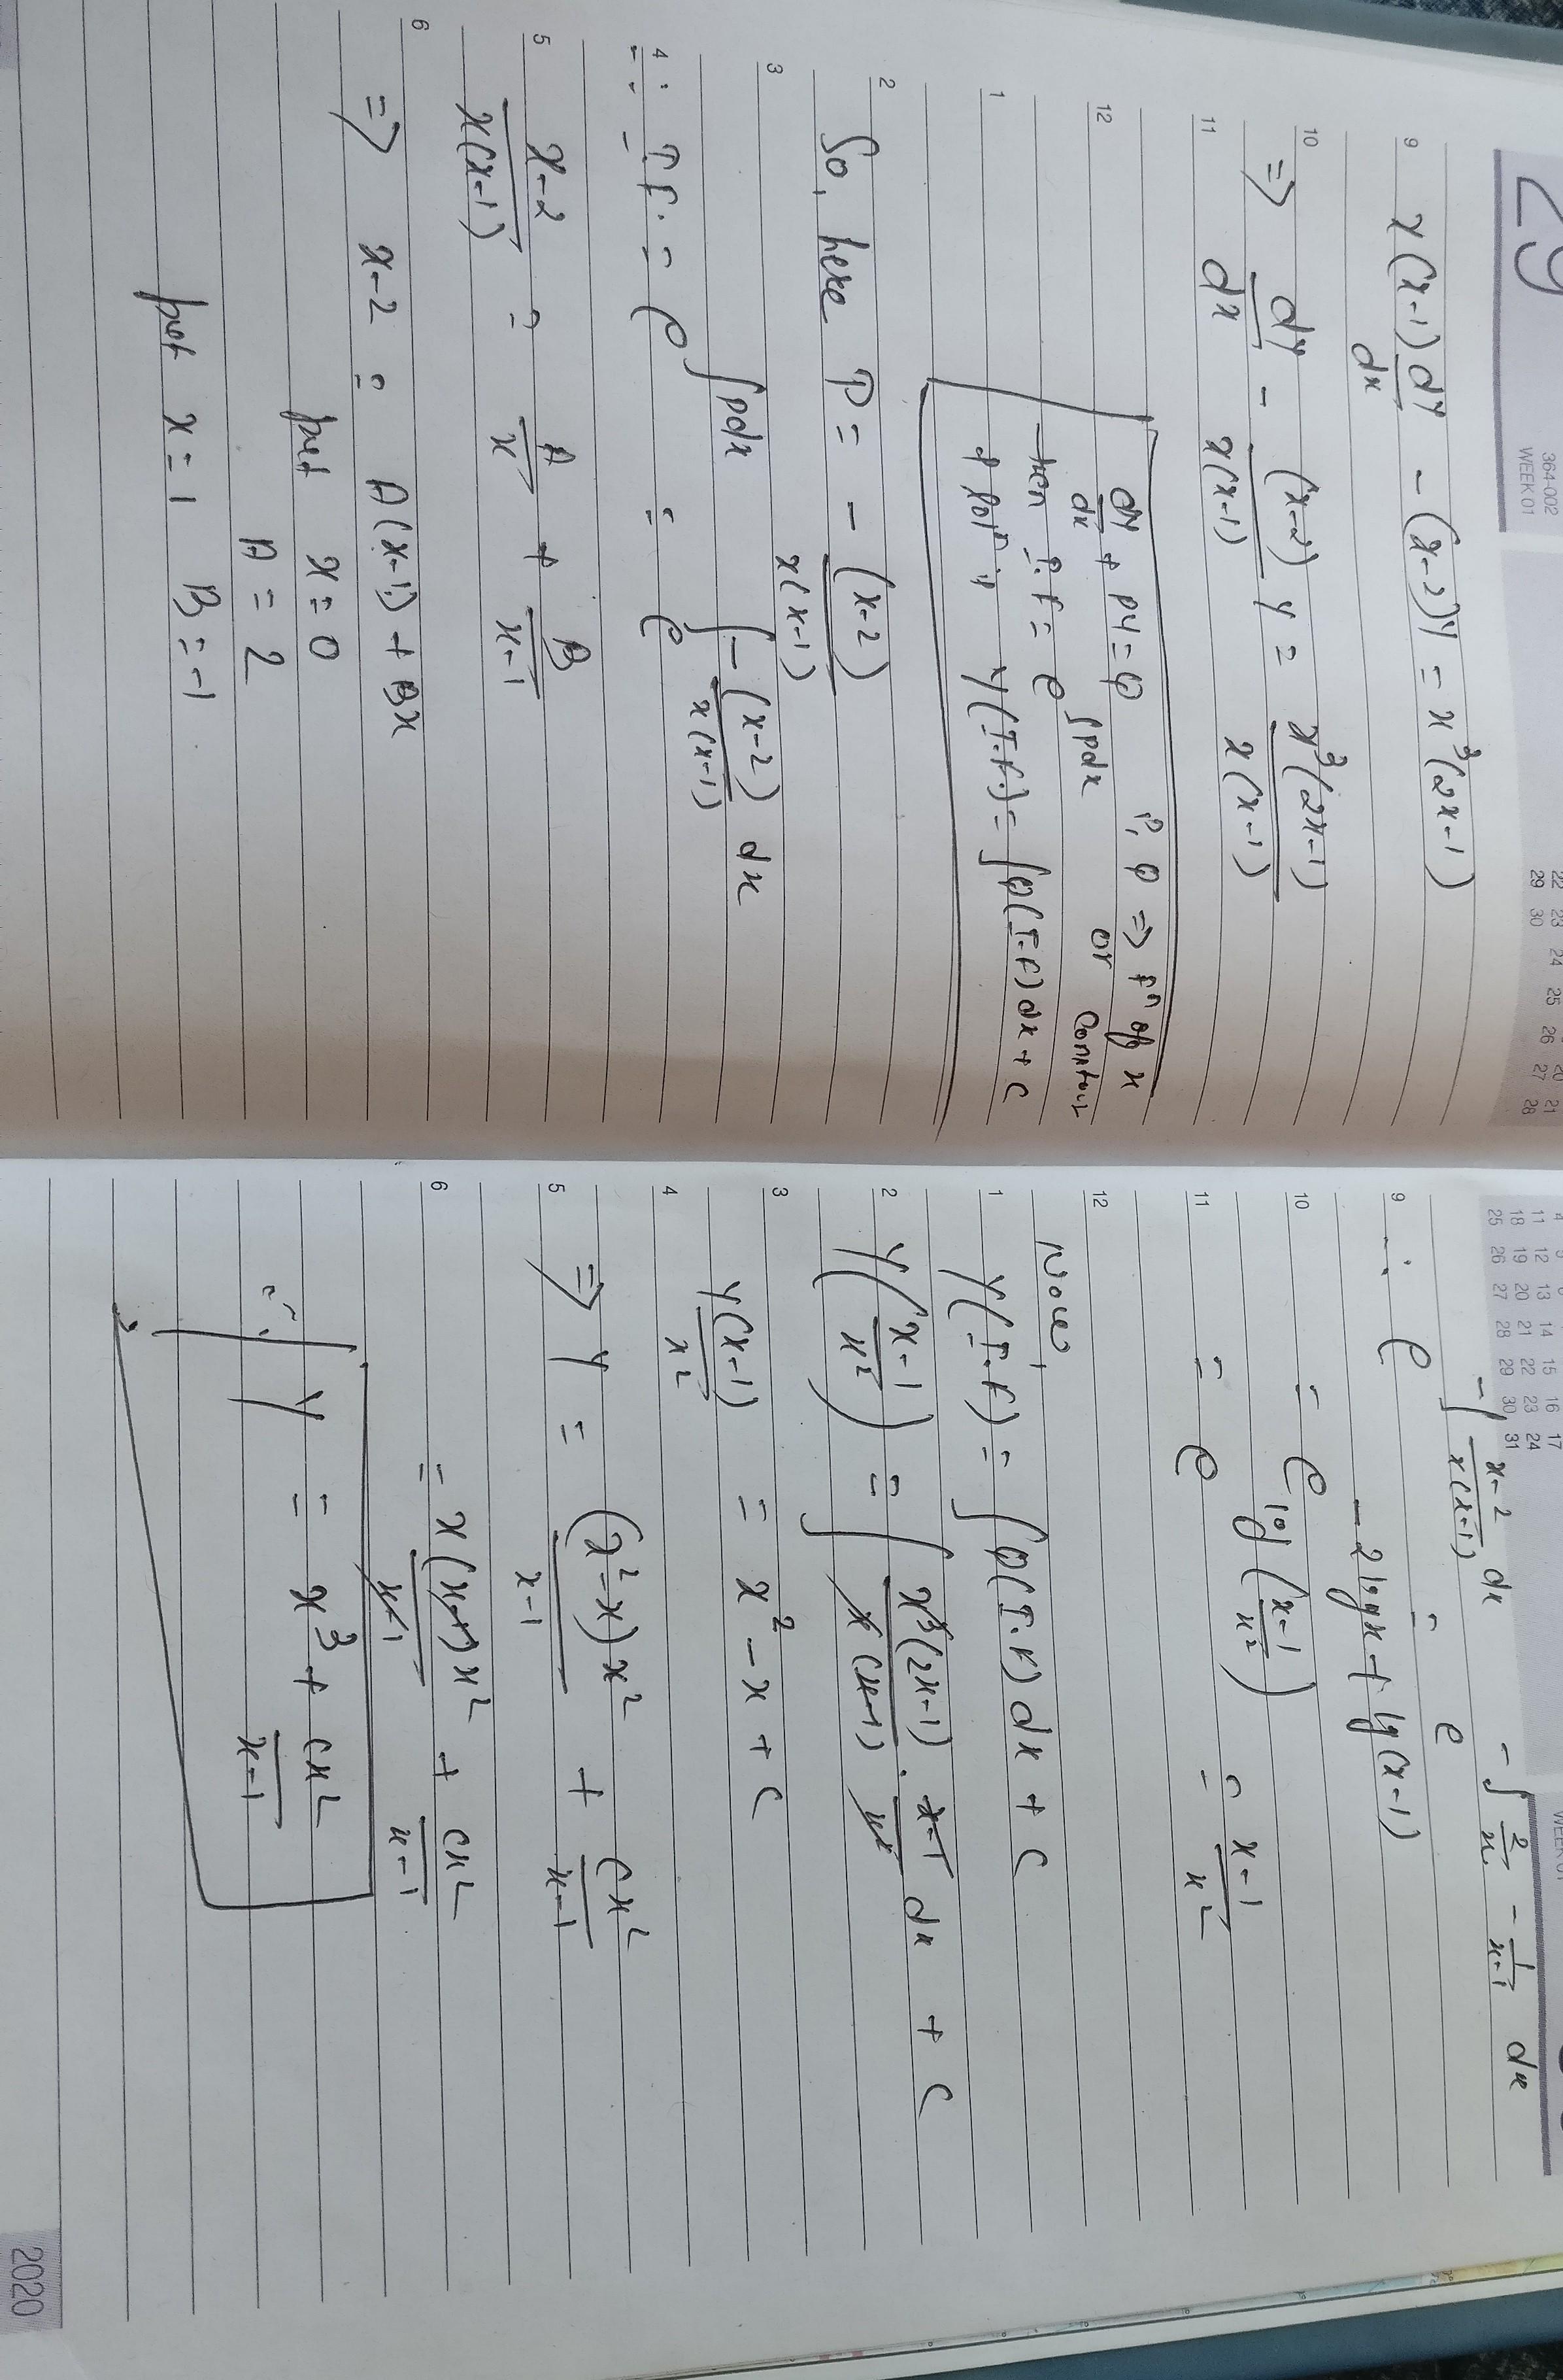 29
364-002
WEEK 01
22 23 24 25 26 27 28
29 30
9 x(x-1) dy/dx - (x-2)y = x³(2x-1)
10 => dy/dx - (x-2)/x(x-1) y = x³(2x-1)/x(x-1)
11
12 dy/dx + Py = Q P, Q => Fⁿ of x
or
then I.F = e^∫Pdx
1 & solⁿ is y(I.F.) = ∫Q(I.F) dx + C
2 So, here P = - (x-2)/x(x-1)
3
4 ∴ I.F. = e^∫pdx = e^∫-(x-2)/x(x-1) dx
5 x-2/x(x-1) = A/x + B/x-1
6 => x-2 = A(x-1) + Bx
put x = 0
A = 2
put x = 1 B = -1
11 12 13 14 15 16 17
18 19 20 21 22 23 24
25 26 27 28 29 30 31
9 ∴ e^-∫x-2/x(x-1) dx = e^-∫2/x - 1/x-1 dx
10 = e^-2logx + log(x-1)
11 = e^log(x-1/x²) = x-1/x²
12
Now,
1 y(I.F) = ∫Q(I.F) dx + C
2 y(x-1/x²) = ∫x³(2x-1)/x(x-1) · x-1/x² dx + C
3 y(x-1)/x² = x² - x + C
4
5 => y = (x²-x)x²/x-1 + cx²/x-1
6 = x(x-1)x²/x-1 + cx²/x-1
y = x³ + cx²/x-1
2020